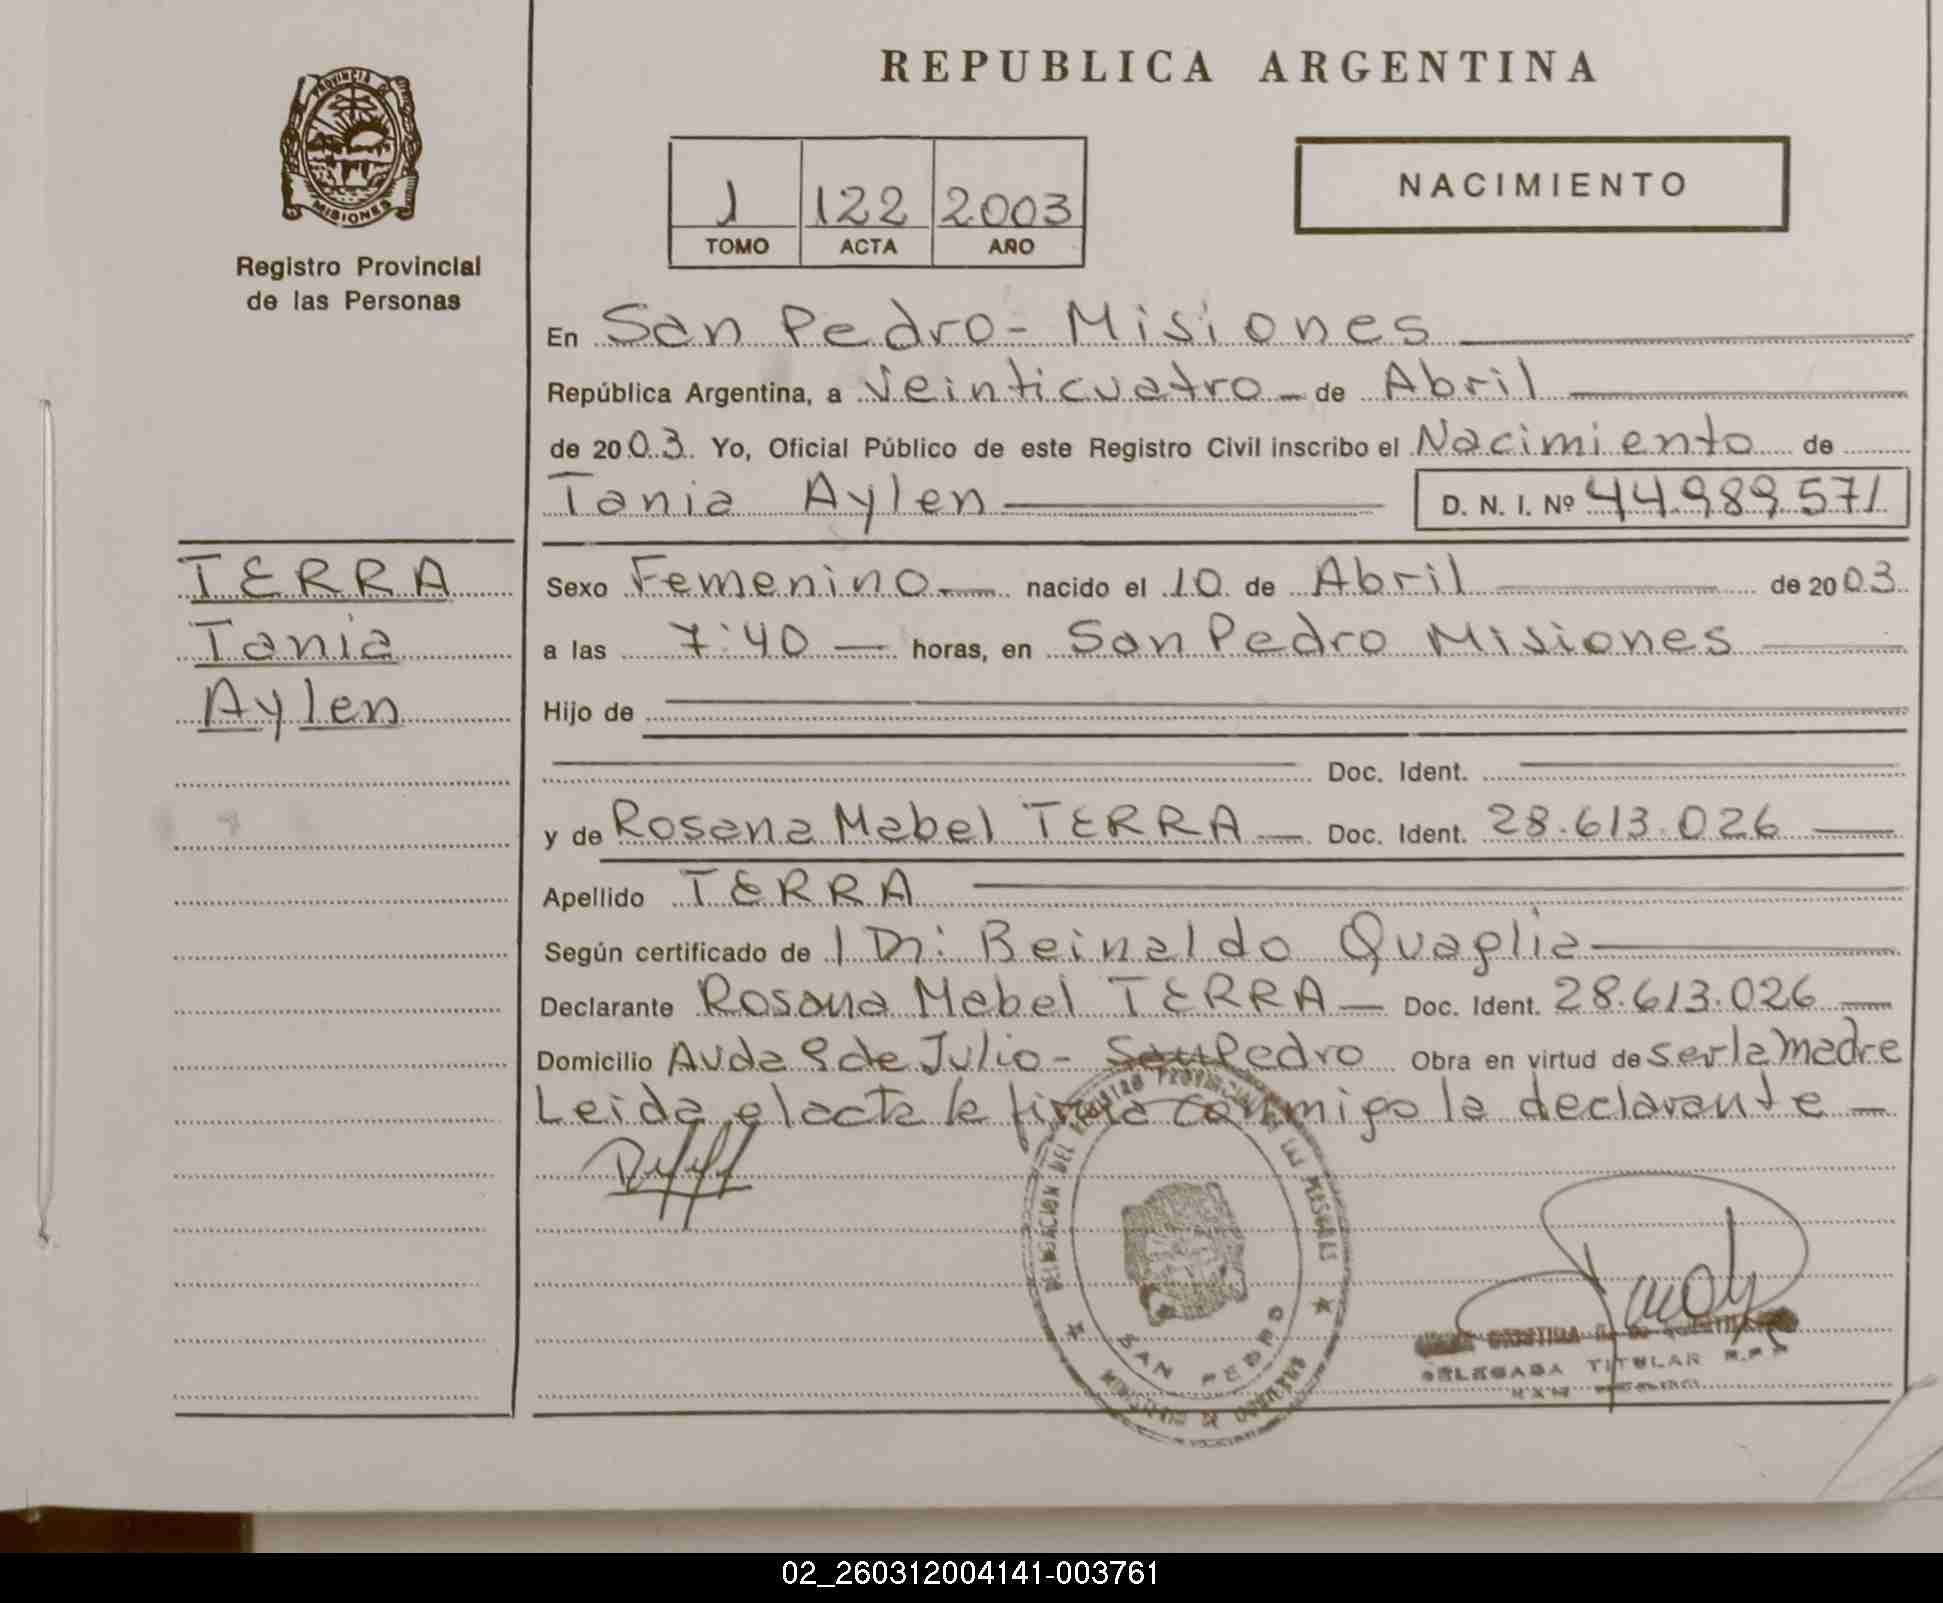 REPUBLICA ARGENTINA
PROVINCIA DE
MISIONES
Registro Provincial
de las Personas
1 122 2003
TOMO ACTA AÑO
NACIMIENTO
En San Pedro - Misiones
República Argentina, a Veinticuatro de Abril
de 2003. Yo, Oficial Público de este Registro Civil inscribo el Nacimiento de
Tania Aylen D. N. I. Nº 44.989.571
TERRA
Tania
Aylen
Sexo Femenino nacido el 10 de Abril de 2003
a las 7:40 horas, en San Pedro Misiones
Hijo de
Doc. Ident.
y de Rosana Mabel TERRA Doc. Ident. 28.613.026
Apellido TERRA
Según certificado de Beinaldo Quaglia
Declarante Rosana Mabel TERRA Doc. Ident. 28.613.026
Domicilio Avda 9 de Julio - San Pedro Obra en virtud de ser la madre
Leida el acta la firma conmigo la declarante
DELEGACION DEL REGISTRO PROVINCIAL DE LAS PERSONAS
SAN PEDRO
MINISTERIO DE GOBIERNO
DELEGADA TITULAR R.P.P.
SAN PEDRO
02_260312004141-003761